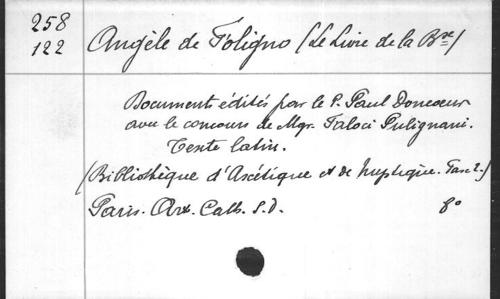 258
122
Angèle de Foligno (Le Livre de la Bse)
Documents édités par le P. Paul Doncoeur
avec le concours de Mgr. Faloci Pulignani.
Texte latin.
(Bibliothèque d'Ascétique et de Mystique. Fasc 2.)
Paris. Art. Cath. S.D. 8°